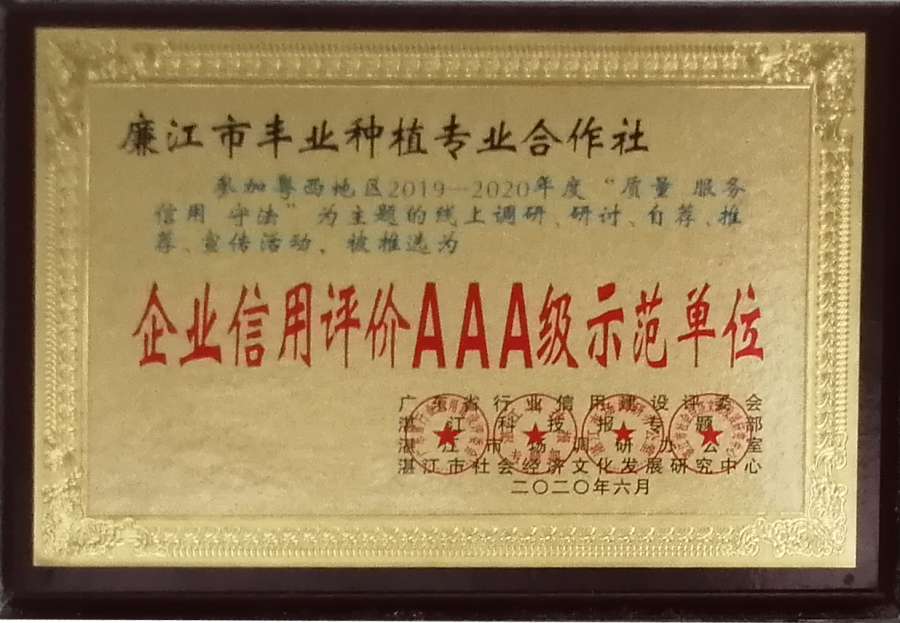 廉江市丰业种植专业合作社
参加粤西地区2019—2020年度“质量 服务
信用 守法”为主题的线上调研、研讨、自荐、推
荐、宣传活动、被推选为
企业信用评价AAA级示范单位
广东省行业信用建设评委会
湛江科技报专题部
湛江市场调研办公室
湛江市社会经济文化发展研究中心
二〇二〇年六月